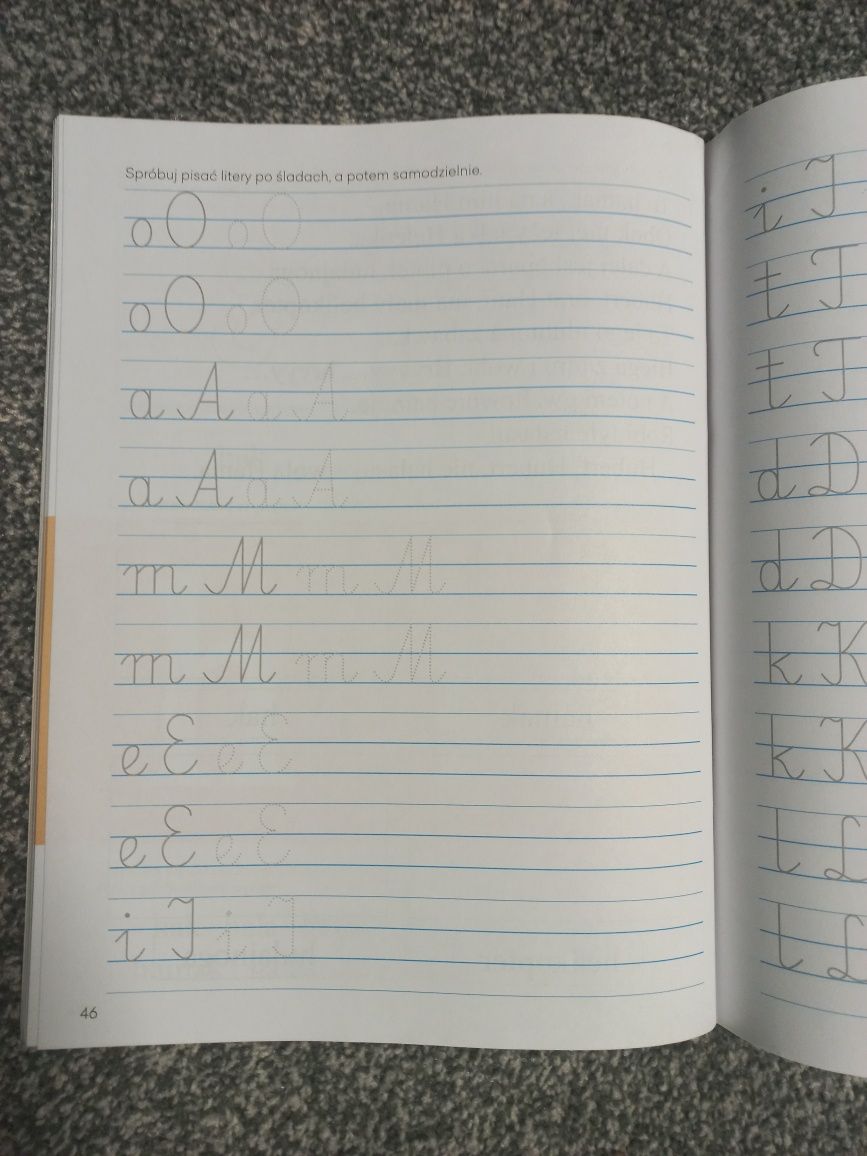 Spróbuj pisać litery po śladach, a potem samodzielnie.
o O o O
o O o O
a A a A
a A a A
m M m M
m M m M
e E e E
e E e E
i I i I
46
i I
t T
t T
d D
d D
k K
k K
l L
l L